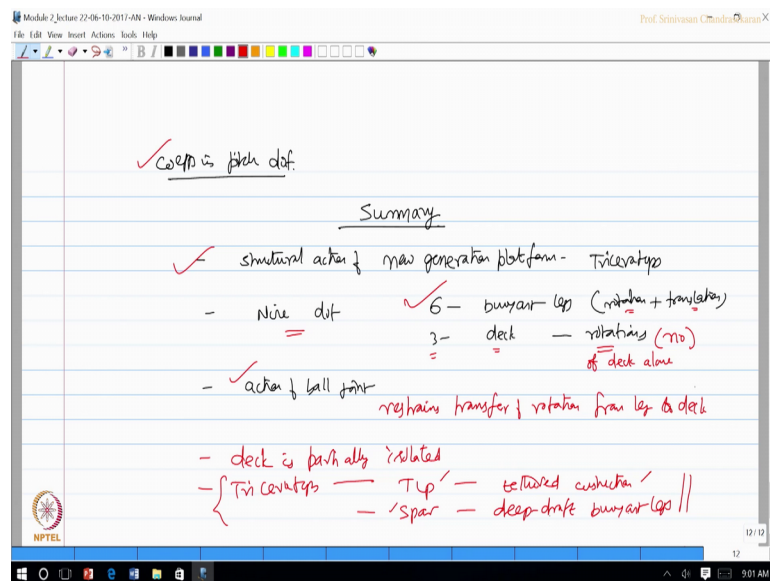 Module 2_lecture 22-06-10-2017-AN - Windows Journal
Prof. Srinivasan Chandrasekaran
File Edit View Insert Actions Tools Help
B I
in pitch dof.
Summary
- structural action of new generation platform - Triceratops
- Nine dof 6 - buoyant legs (rotation + translation)
3 - deck - rotations (no)
of deck alone
- action of ball joint
restrains transfer of rotation from leg to deck
- deck is partially isolated
- Triceratops - TLP - tethered
- Spar - deep-draft buoyant legs
NPTEL
12/12
12
9:01 AM